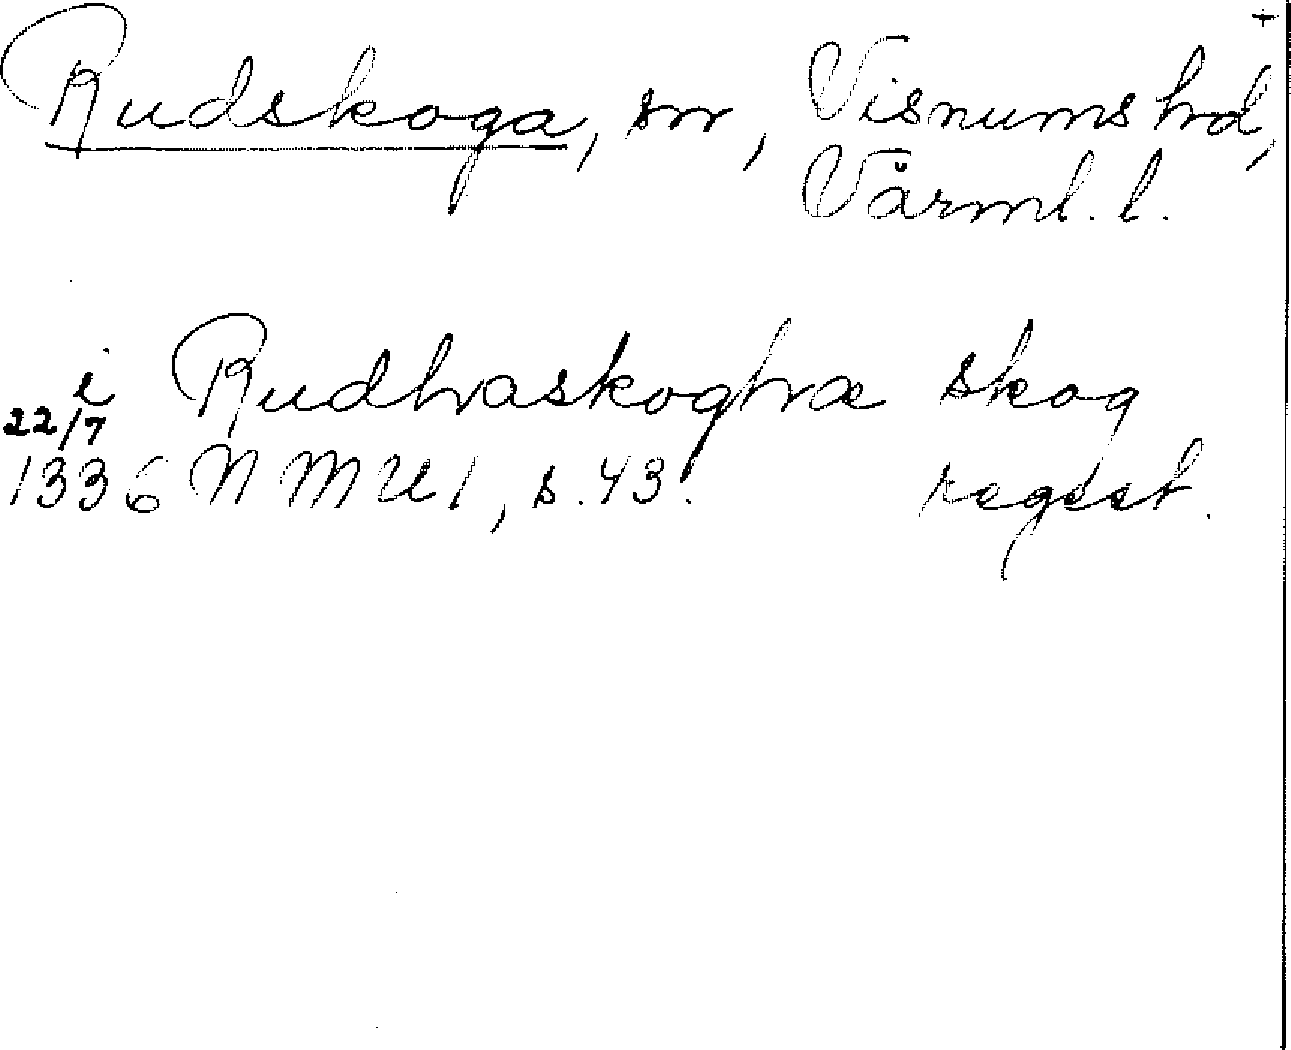 +
Rudskoga, sn, Visnums hd,
Värml. l.
i Rudhaskoghæ skog
22/7
1336 NMU 1, s. 43. regest.